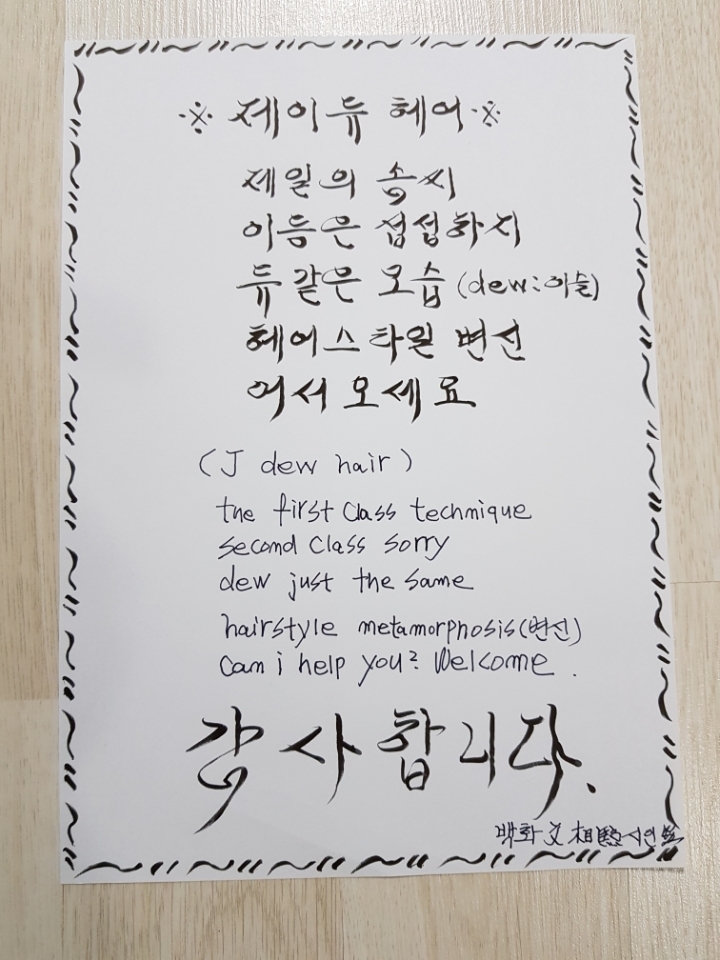 ※ 제이듀 헤어 ※
제일의 솜씨
이등은 섭섭하지
듀같은 모습 (dew:이슬)
헤어스타일 변신
어서오세요
(J dew hair)
the first class technique
second class sorry
dew just the same
hairstyle metamorphosis(변신)
Can i help you? Welcome.
감사합니다.
백화 文 相 시인